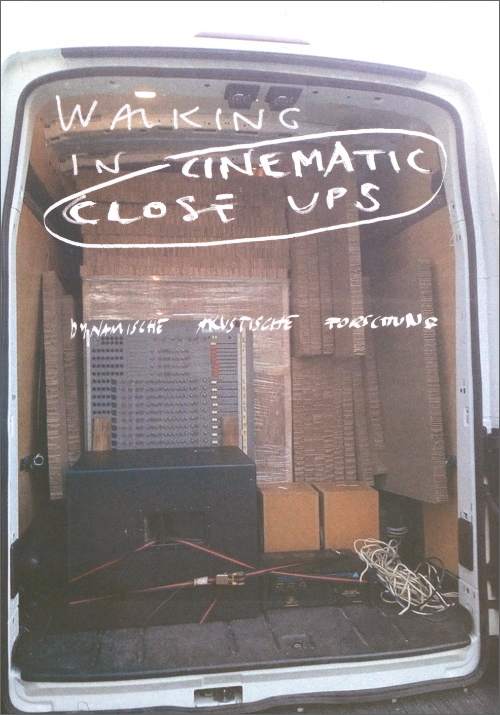 WALKING
IN CINEMATIC
CLOSE UPS
DYNAMISCHE AKUSTISCHE FORSCHUNG